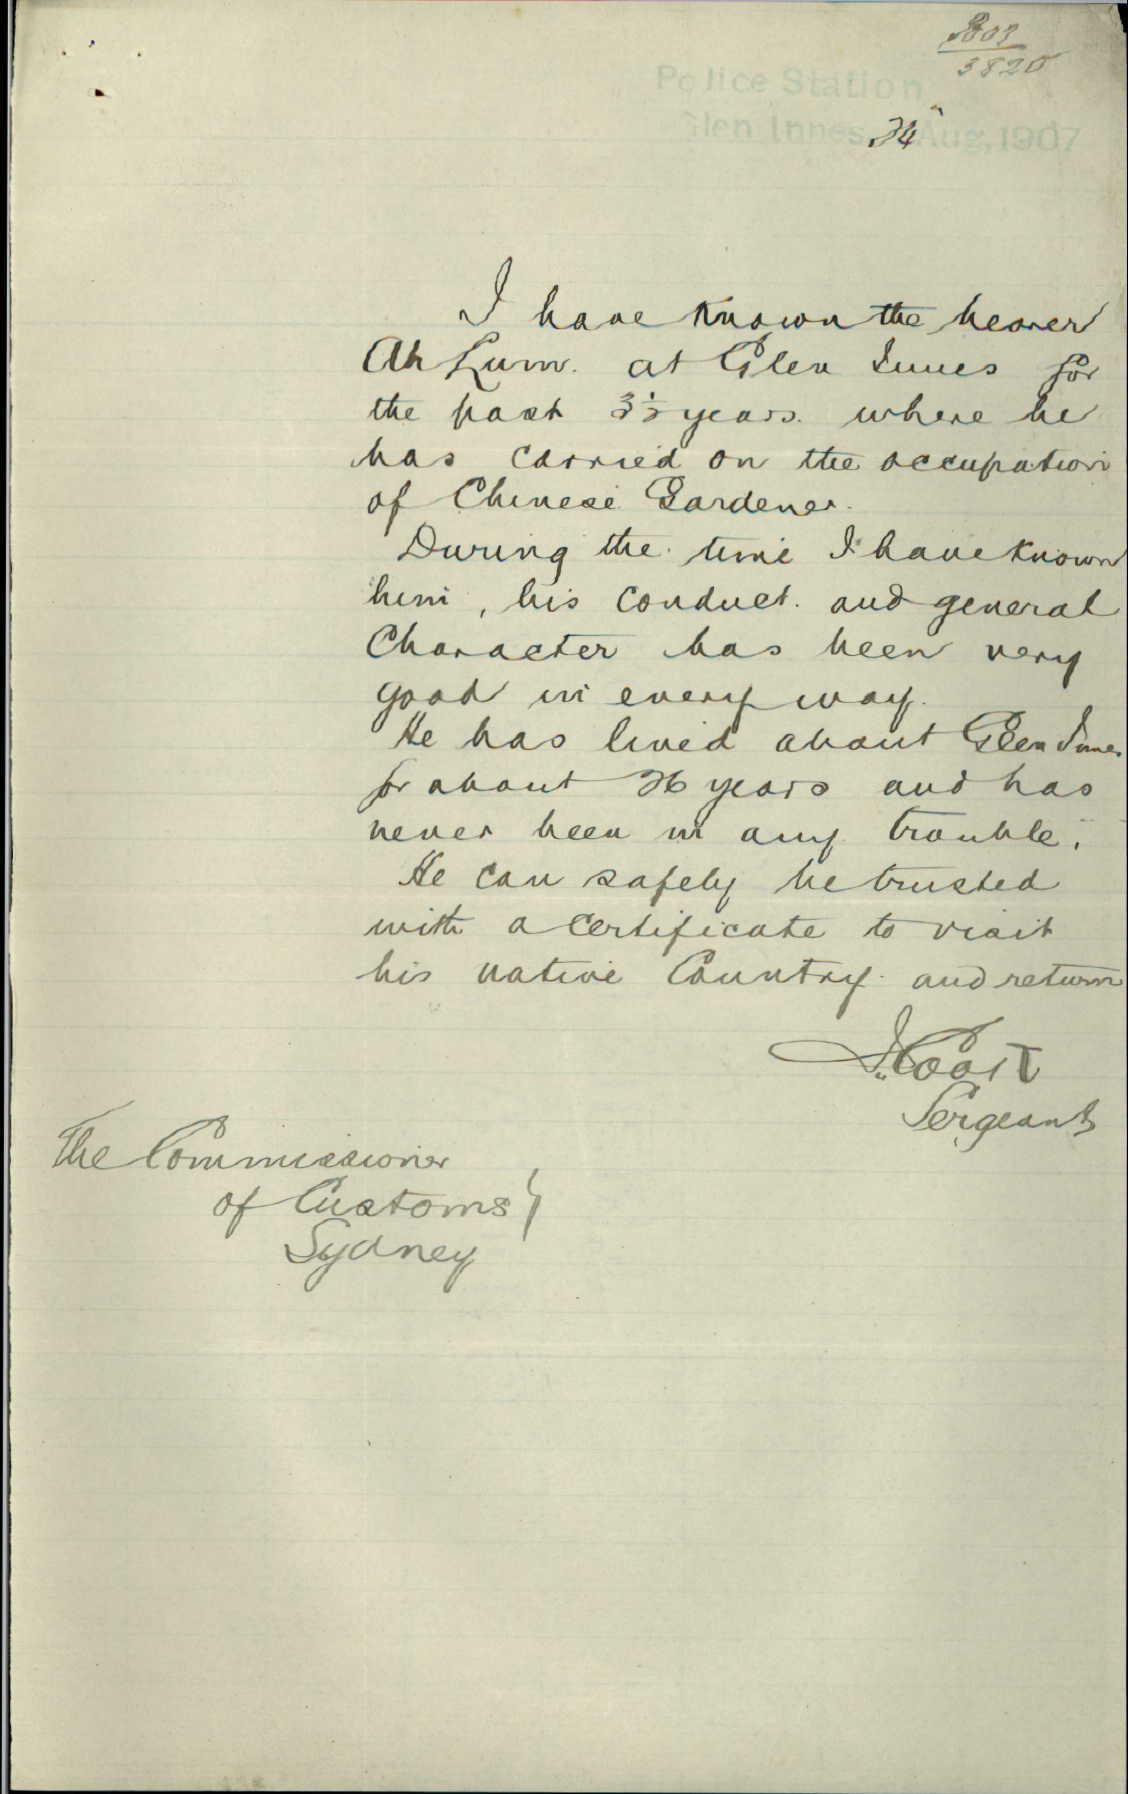 Police Station
Glen Innes 24 Aug, 1907
I have known the bearer
Ah Lum. at Glen Innes for
the past 3½ years. where he
has carried on the occupation
of Chinese Gardener.
During the time I have known
him, his conduct. and general
Character has been very
good in every way.
He has lived about Glen Innes
for about 26 years and has
never been in any trouble.
He can safely be trusted
with a certificate to visit
his native Country. and return
Sergeant
The Commissioner
of Customs }
Sydney